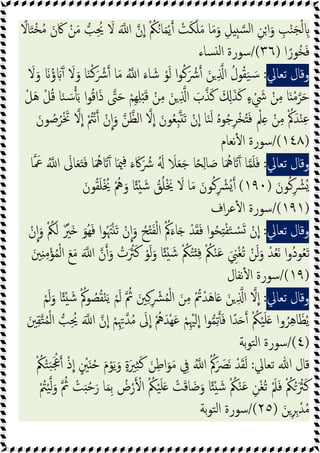 بِالْجَنْبِ وَابْنِ السَّبِيلِ وَمَا مَلَكَتْ أَيْمَانُكُمْ إِنَّ اللَّهَ لَا يُحِبُّ مَنْ كَانَ مُخْتَالًا
فَخُورًا (٣٦)/سورة النساء
وقال تعالي: سَيَقُولُ الَّذِينَ أَشْرَكُوا لَوْ شَاءَ اللَّهُ مَا أَشْرَكْنَا وَلَا آبَاؤُنَا وَلَا
حَرَّمْنَا مِنْ شَيْءٍ كَذَلِكَ كَذَّبَ الَّذِينَ مِنْ قَبْلِهِمْ حَتَّى ذَاقُوا بَأْسَنَا قُلْ هَلْ
عِنْدَكُمْ مِنْ عِلْمٍ فَتُخْرِجُوهُ لَنَا إِنْ تَتَّبِعُونَ إِلَّا الظَّنَّ وَإِنْ أَنْتُمْ إِلَّا تَخْرُصُونَ
(١٤٨)/سورة الأنعام
وقال تعالي: فَلَمَّا آتَاهُمَا صَالِحًا جَعَلَا لَهُ شُرَكَاءَ فِيمَا آتَاهُمَا فَتَعَالَى اللَّهُ عَمَّا
يُشْرِكُونَ (١٩٠) أَيُشْرِكُونَ مَا لَا يَخْلُقُ شَيْئًا وَهُمْ يُخْلَقُونَ
(١٩١)/سورة الأعراف
وقال تعالي: إِنْ تَسْتَفْتِحُوا فَقَدْ جَاءَكُمُ الْفَتْحُ وَإِنْ تَنْتَهُوا فَهُوَ خَيْرٌ لَكُمْ وَإِنْ
تَعُودُوا نَعُدْ وَلَنْ تُغْنِيَ عَنْكُمْ فِئَتُكُمْ شَيْئًا وَلَوْ كَثُرَتْ وَأَنَّ اللَّهَ مَعَ الْمُؤْمِنِينَ
(١٩)/سورة الأنفال
وقال تعالي: إِلَّا الَّذِينَ عَاهَدْتُمْ مِنَ الْمُشْرِكِينَ ثُمَّ لَمْ يَنْقُصُوكُمْ شَيْئًا وَلَمْ
يُظَاهِرُوا عَلَيْكُمْ أَحَدًا فَأَتِمُّوا إِلَيْهِمْ عَهْدَهُمْ إِلَى مُدَّتِهِمْ إِنَّ اللَّهَ يُحِبُّ الْمُتَّقِينَ
(٤)/سورة التوبة
قال الله تعالي: لَقَدْ نَصَرَكُمُ اللَّهُ فِي مَوَاطِنَ كَثِيرَةٍ وَيَوْمَ حُنَيْنٍ إِذْ أَعْجَبَتْكُمْ
كَثْرَتُكُمْ فَلَمْ تُغْنِ عَنْكُمْ شَيْئًا وَضَاقَتْ عَلَيْكُمُ الْأَرْضُ بِمَا رَحُبَتْ ثُمَّ وَلَّيْتُمْ
مُدْبِرِينَ (٢٥)/سورة التوبة